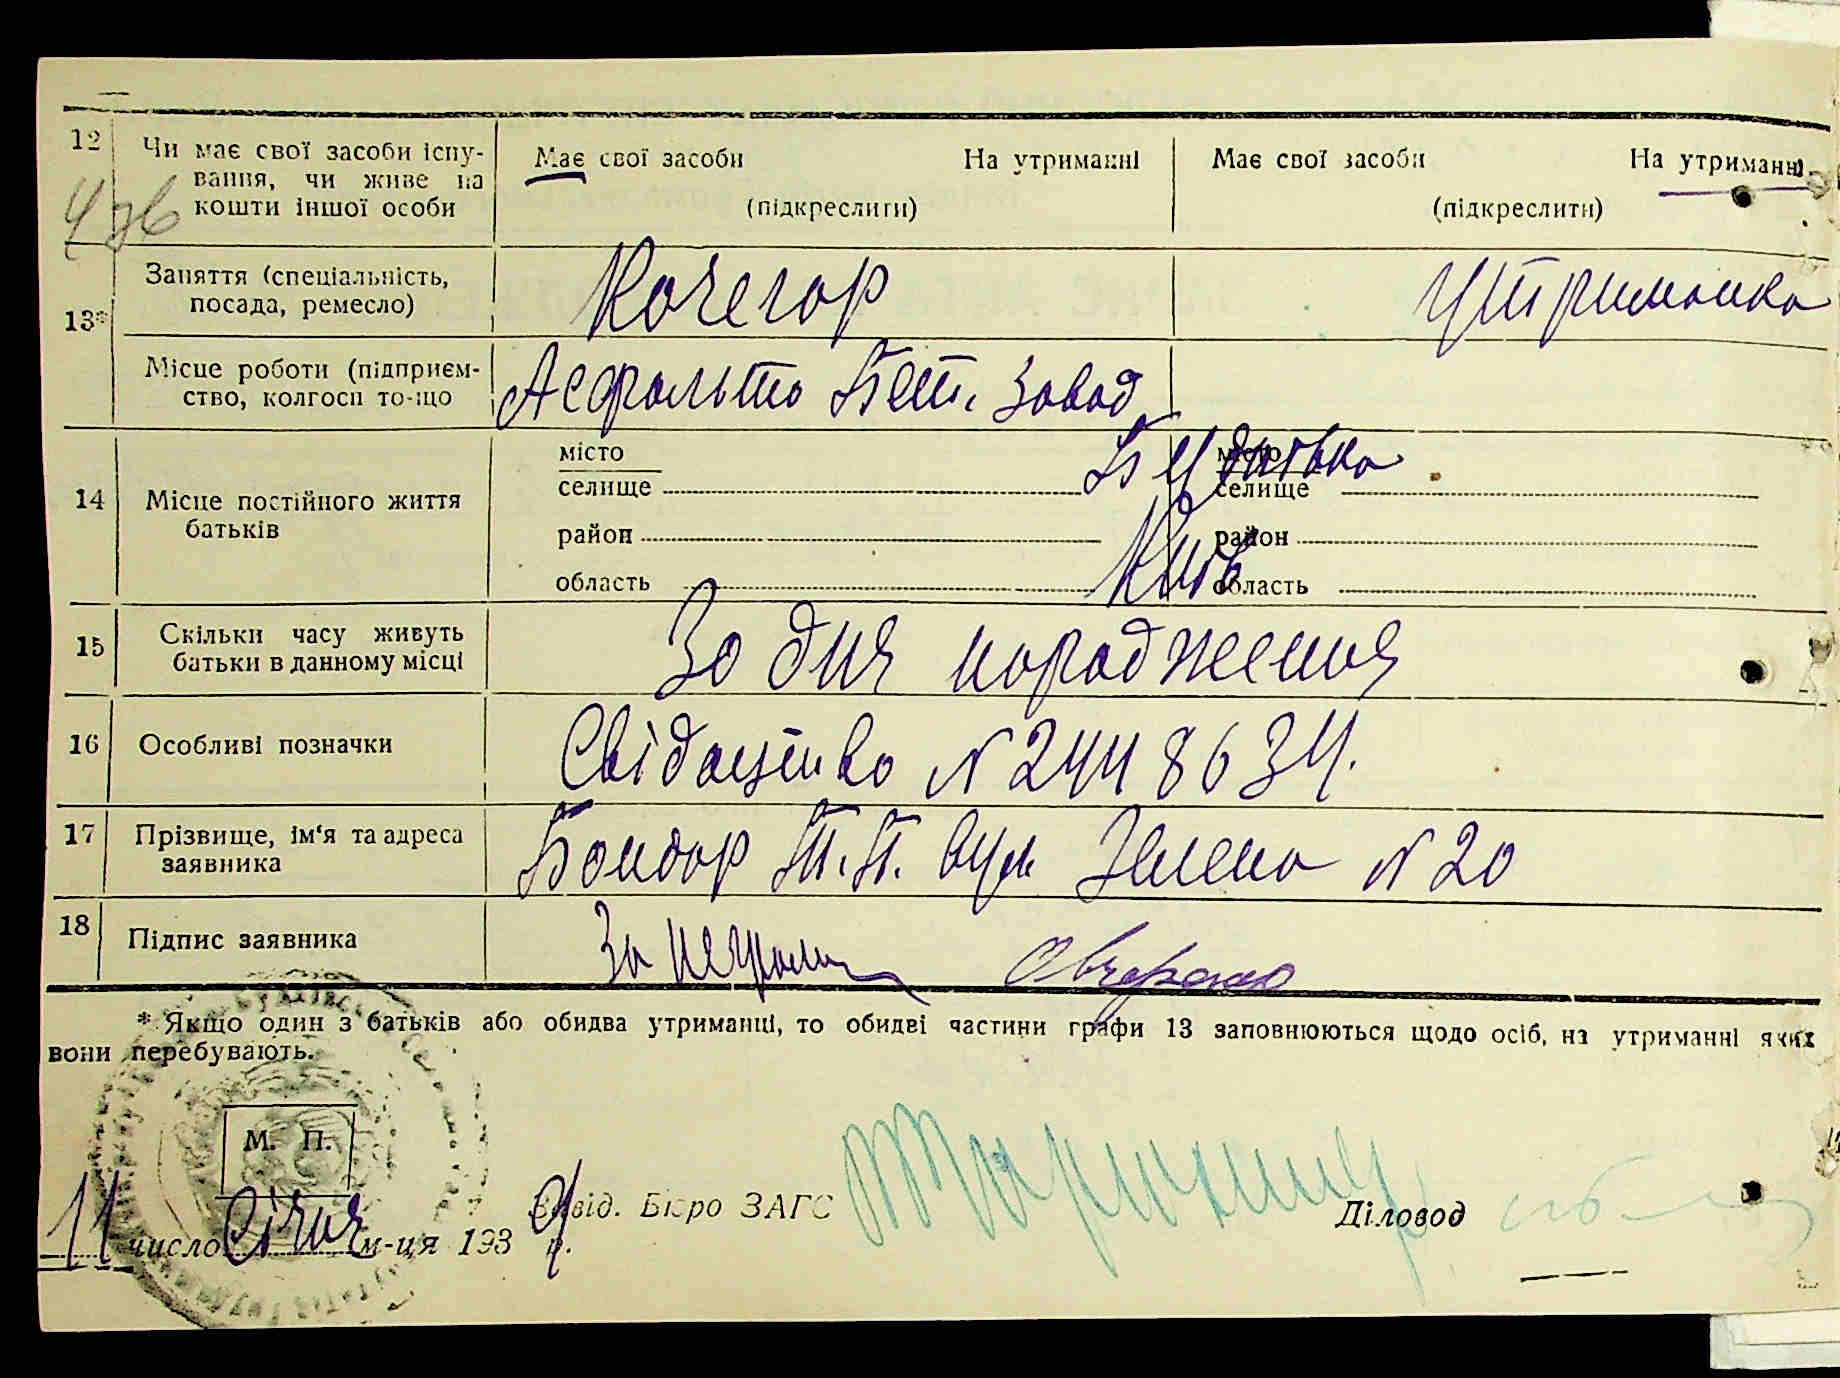 12 Чи має свої засоби існу-
вання, чи живе на
кошти іншої особи
Має свої засоби На утриманні
(підкреслити)
Має свої засоби На утриманні
(підкреслити)
13* Заняття (спеціальність,
посада, ремесло)
Кочегар
Утриманка
Місце роботи (підприєм-
ство, колгосп то-що
Асфальто Бет. завод
14 Місце постійного життя
батьків
місто
селище
район
область
місто
селище
район
область
Київ
15 Скільки часу живуть
батьки в данному місці
За дня народження
16 Особливі позначки
Свідоцтво N 2448634.
17 Прізвище, ім'я та адреса
заявника
Бондар Т.П. вул Зелена N 20
18 Підпис заявника
За неграм
* Якщо один з батьків або обидва утриманці, то обидві частини графи 13 заповнюються щодо осіб, на утриманні яких
вони перебувають.
М. П.
11 число Січня м-ця 1939 р.
Завід. Бюро ЗАГС
Діловод